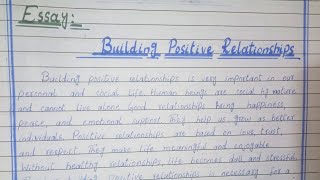 Essay:
Building Positive Relationships
Building positive relationships is very important in our
personal and social life. Human beings are social by nature
and cannot live alone. Good relationships being happiness,
peace, and emotional support. They help us grow as better
individuals. Positive relationships are based on love, trust,
and respect. They make life meaningful and enjoyable.
Without healthy relationships, life becomes dull and stressful.
relationships is necessary for a